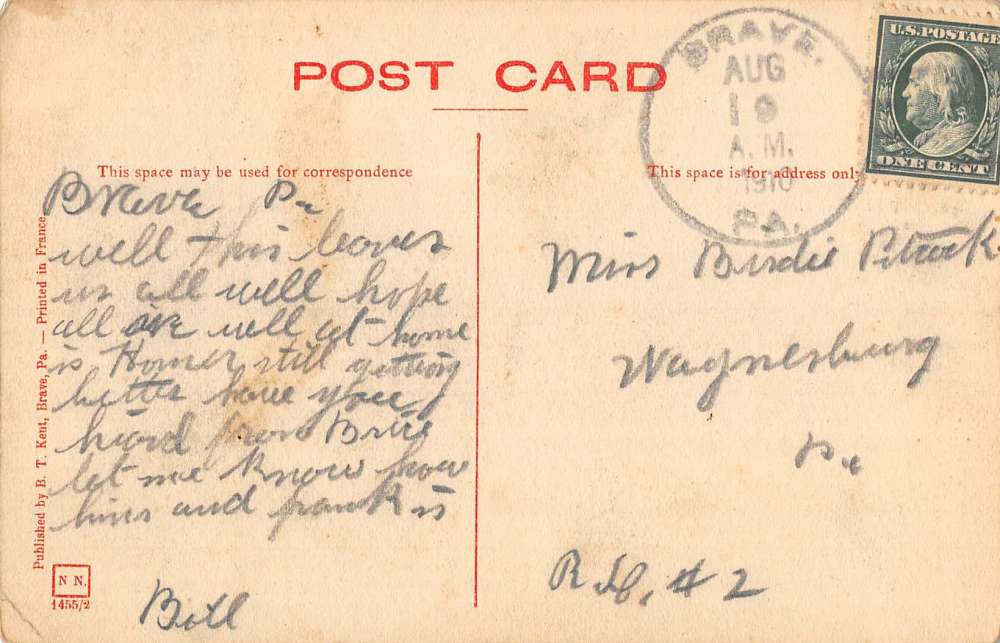 POST CARD
This space may be used for correspondence
This space is for address only
BRAVE,
AUG
19
A.M.
1910
PA.
U.S. POSTAGE
ONE CENT
Brave Pa
well this leaves
us all well hope
all are well at home
is Homer still getting
better have you
hird from Brice
let me know how
hims and frank is
Bell
Miss Birdie
Waynesburg
Pa
R.D. #2
Published by B. T. Kent, Brave, Pa. — Printed in France
N N.
1455/2